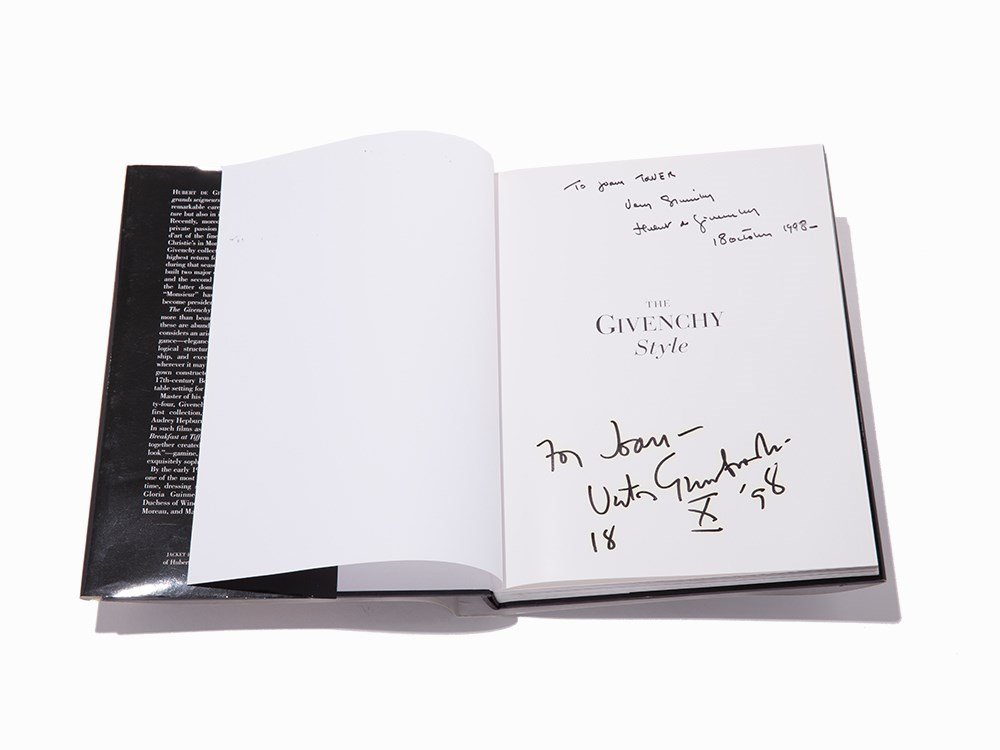 HUBERT DE GI
grands seigneurs
remarkable care
ture but also in
Recently, more
private passion
d'art of the fine
Christie's in Mo
Givenchy collec
highest return f
during that seas
built two major
and the second
the latter dom
"Monsieur" has
become preside
The Givenchy
more than beau
these are abund
considers an ari
gance—elegan
logical structur
ship, and exce
wherever it may
gown construct
17th-century Bo
table setting for
Master of his
ty-four, Givench
first collection,
Audrey Hepbur
In such films as
Breakfast at Tiff
together created
look"—gamine,
exquisitely soph
By the early 19
one of the most
time, dressing
Gloria Guinne
Duchess of Wind
Moreau, and Ma
JACKET
of Huber
To Joan TOWER
Hubert de Givenchy
18 October 1998_
THE
GIVENCHY
Style
For Joan—
18 X '98